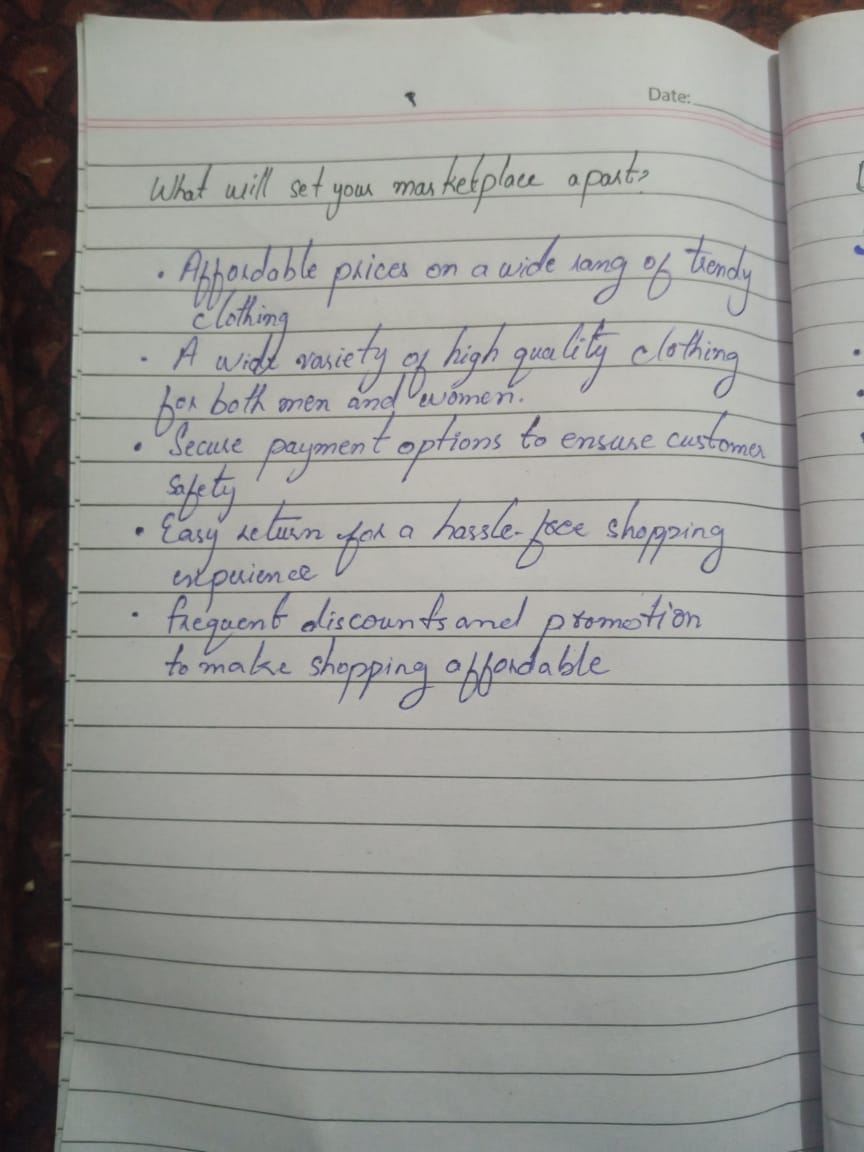 Date:
What will set your marketplace apart?
• Affordable prices on a wide rang of trendy
clothing
• A wide variety of high quality clothing
for both men and women.
• Secure payment options to ensure customer
safety
• Easy return for a hassle-free shopping
experience
• frequent discounts and promotion
to make shopping affordable